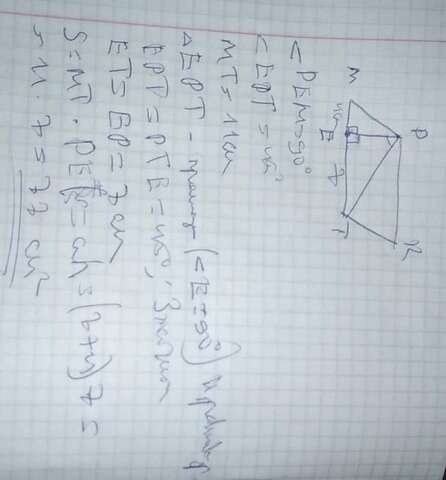 M
P
E
4 см
7
T
K
< PEM = 90°
< EPT = 45°
MT = 11 см
△ EPT - прямоуг (< E = 90°) и равноб
EPT = PTE = 45°, значит
ET = EP = 7 см
S = MT · PE = ah = (7+4) 7 =
= 11 · 7 = 77 см²